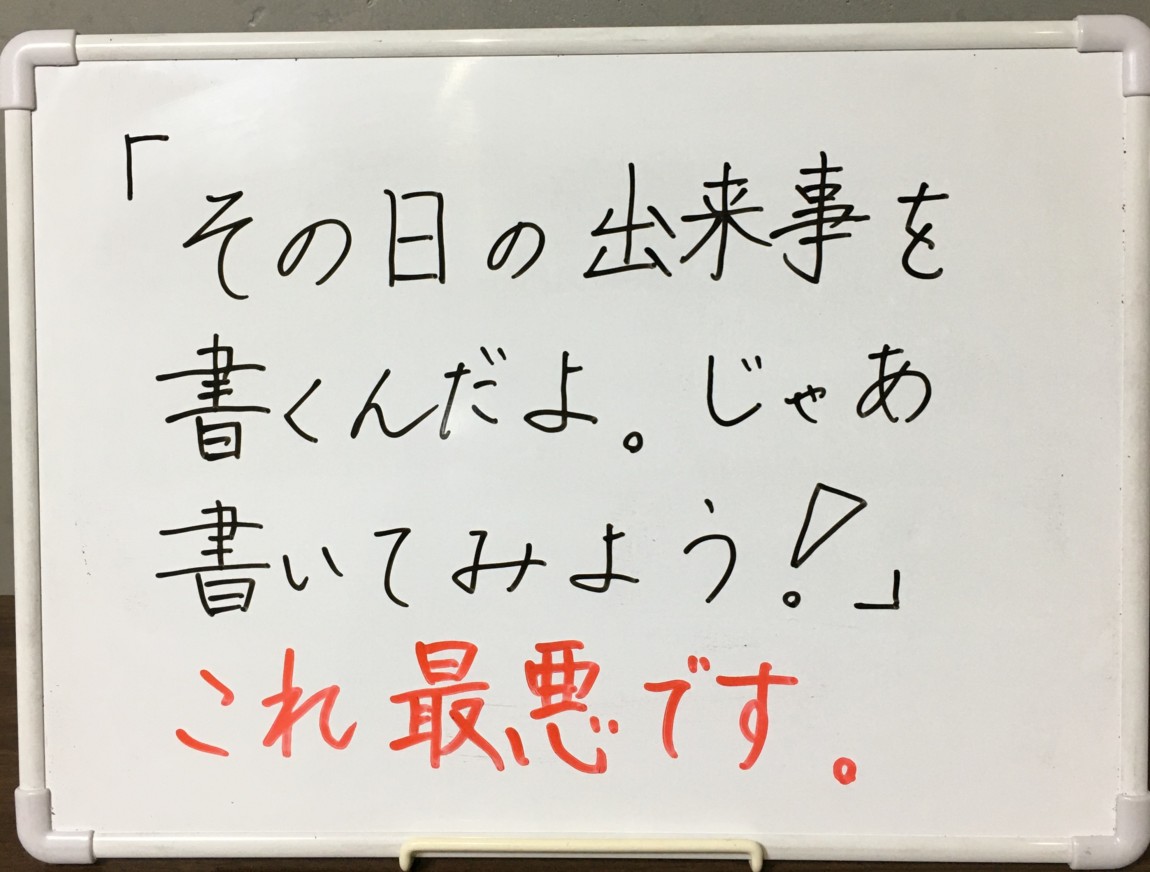 「その日の出来事を
書くんだよ。じゃあ
書いてみよう!」
これ最悪です。